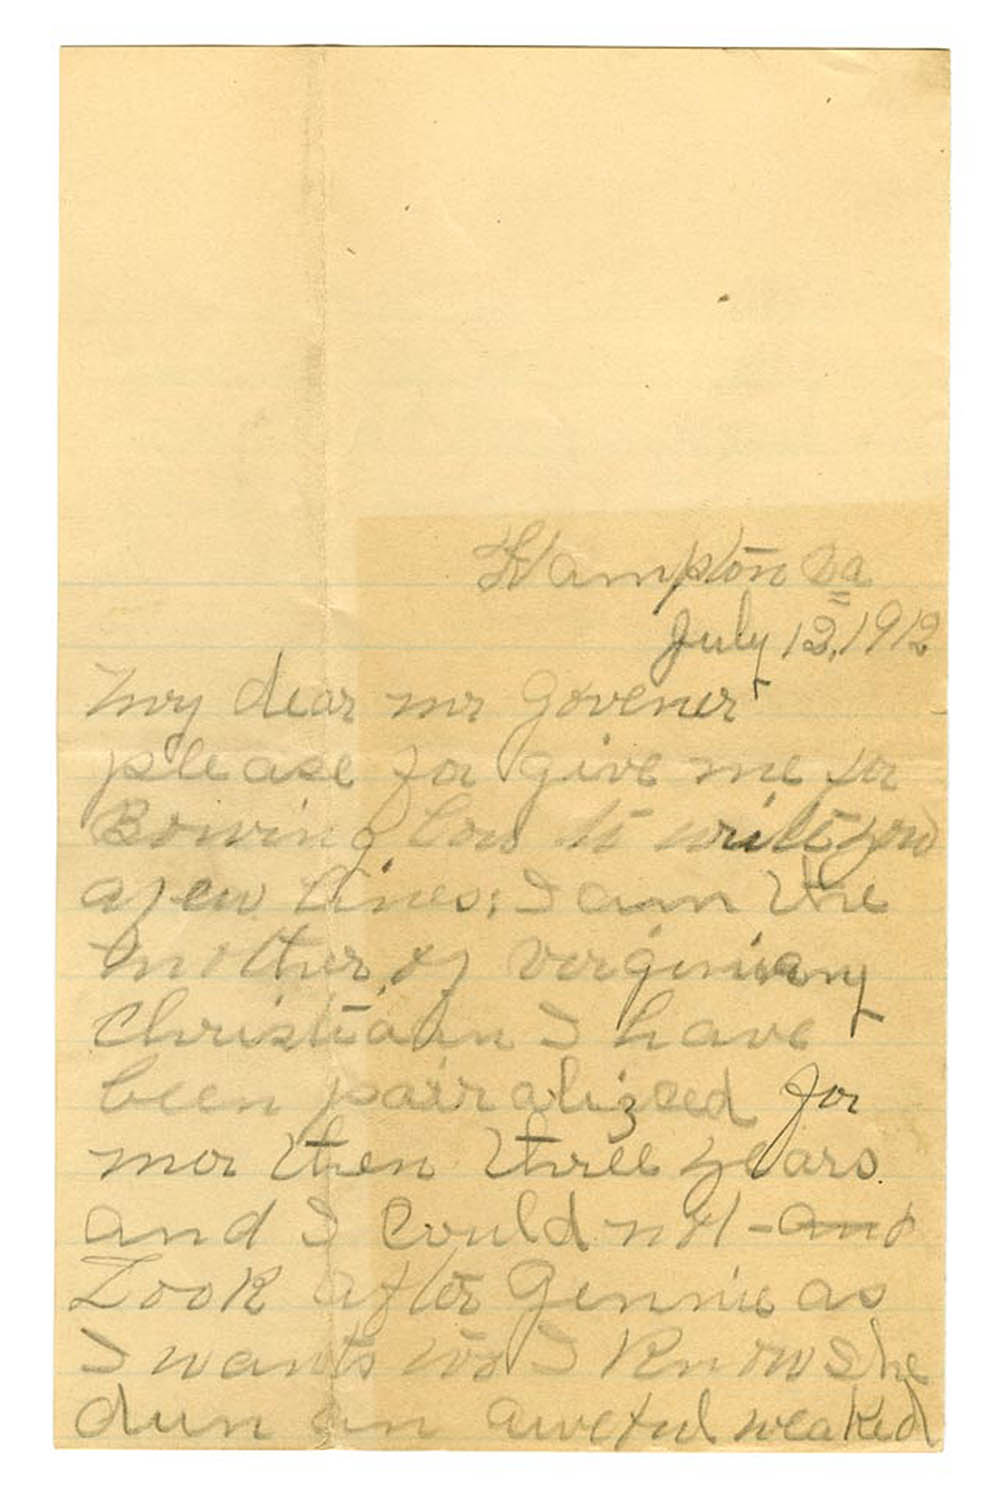 Hampton Va
July 12, 1912
My dear mr Govener
please for give me for
Bowing low to write you
a few Lines: I am the
mother of Virginiany
Christian I have
been pairalized for
mor then three years
and I could not - and
Look after Gennie as
I wants too I know she
dun an aweful weaked